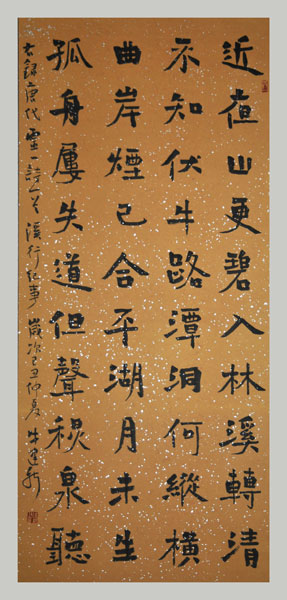 近夜山更碧入林溪轉清
不知伏牛路潭洞何縱橫
曲岸煙已合平湖月未生
孤舟屢失道但聲秋泉聽
右錄唐代靈一詩一首溪行紀事歲次己丑仲夏